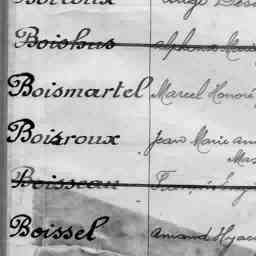 Boishus Alphonse Marie
Boismartel Marcel Honoré
Boisroux Jean Marie
Boisseau
Boissel Armand Hyac